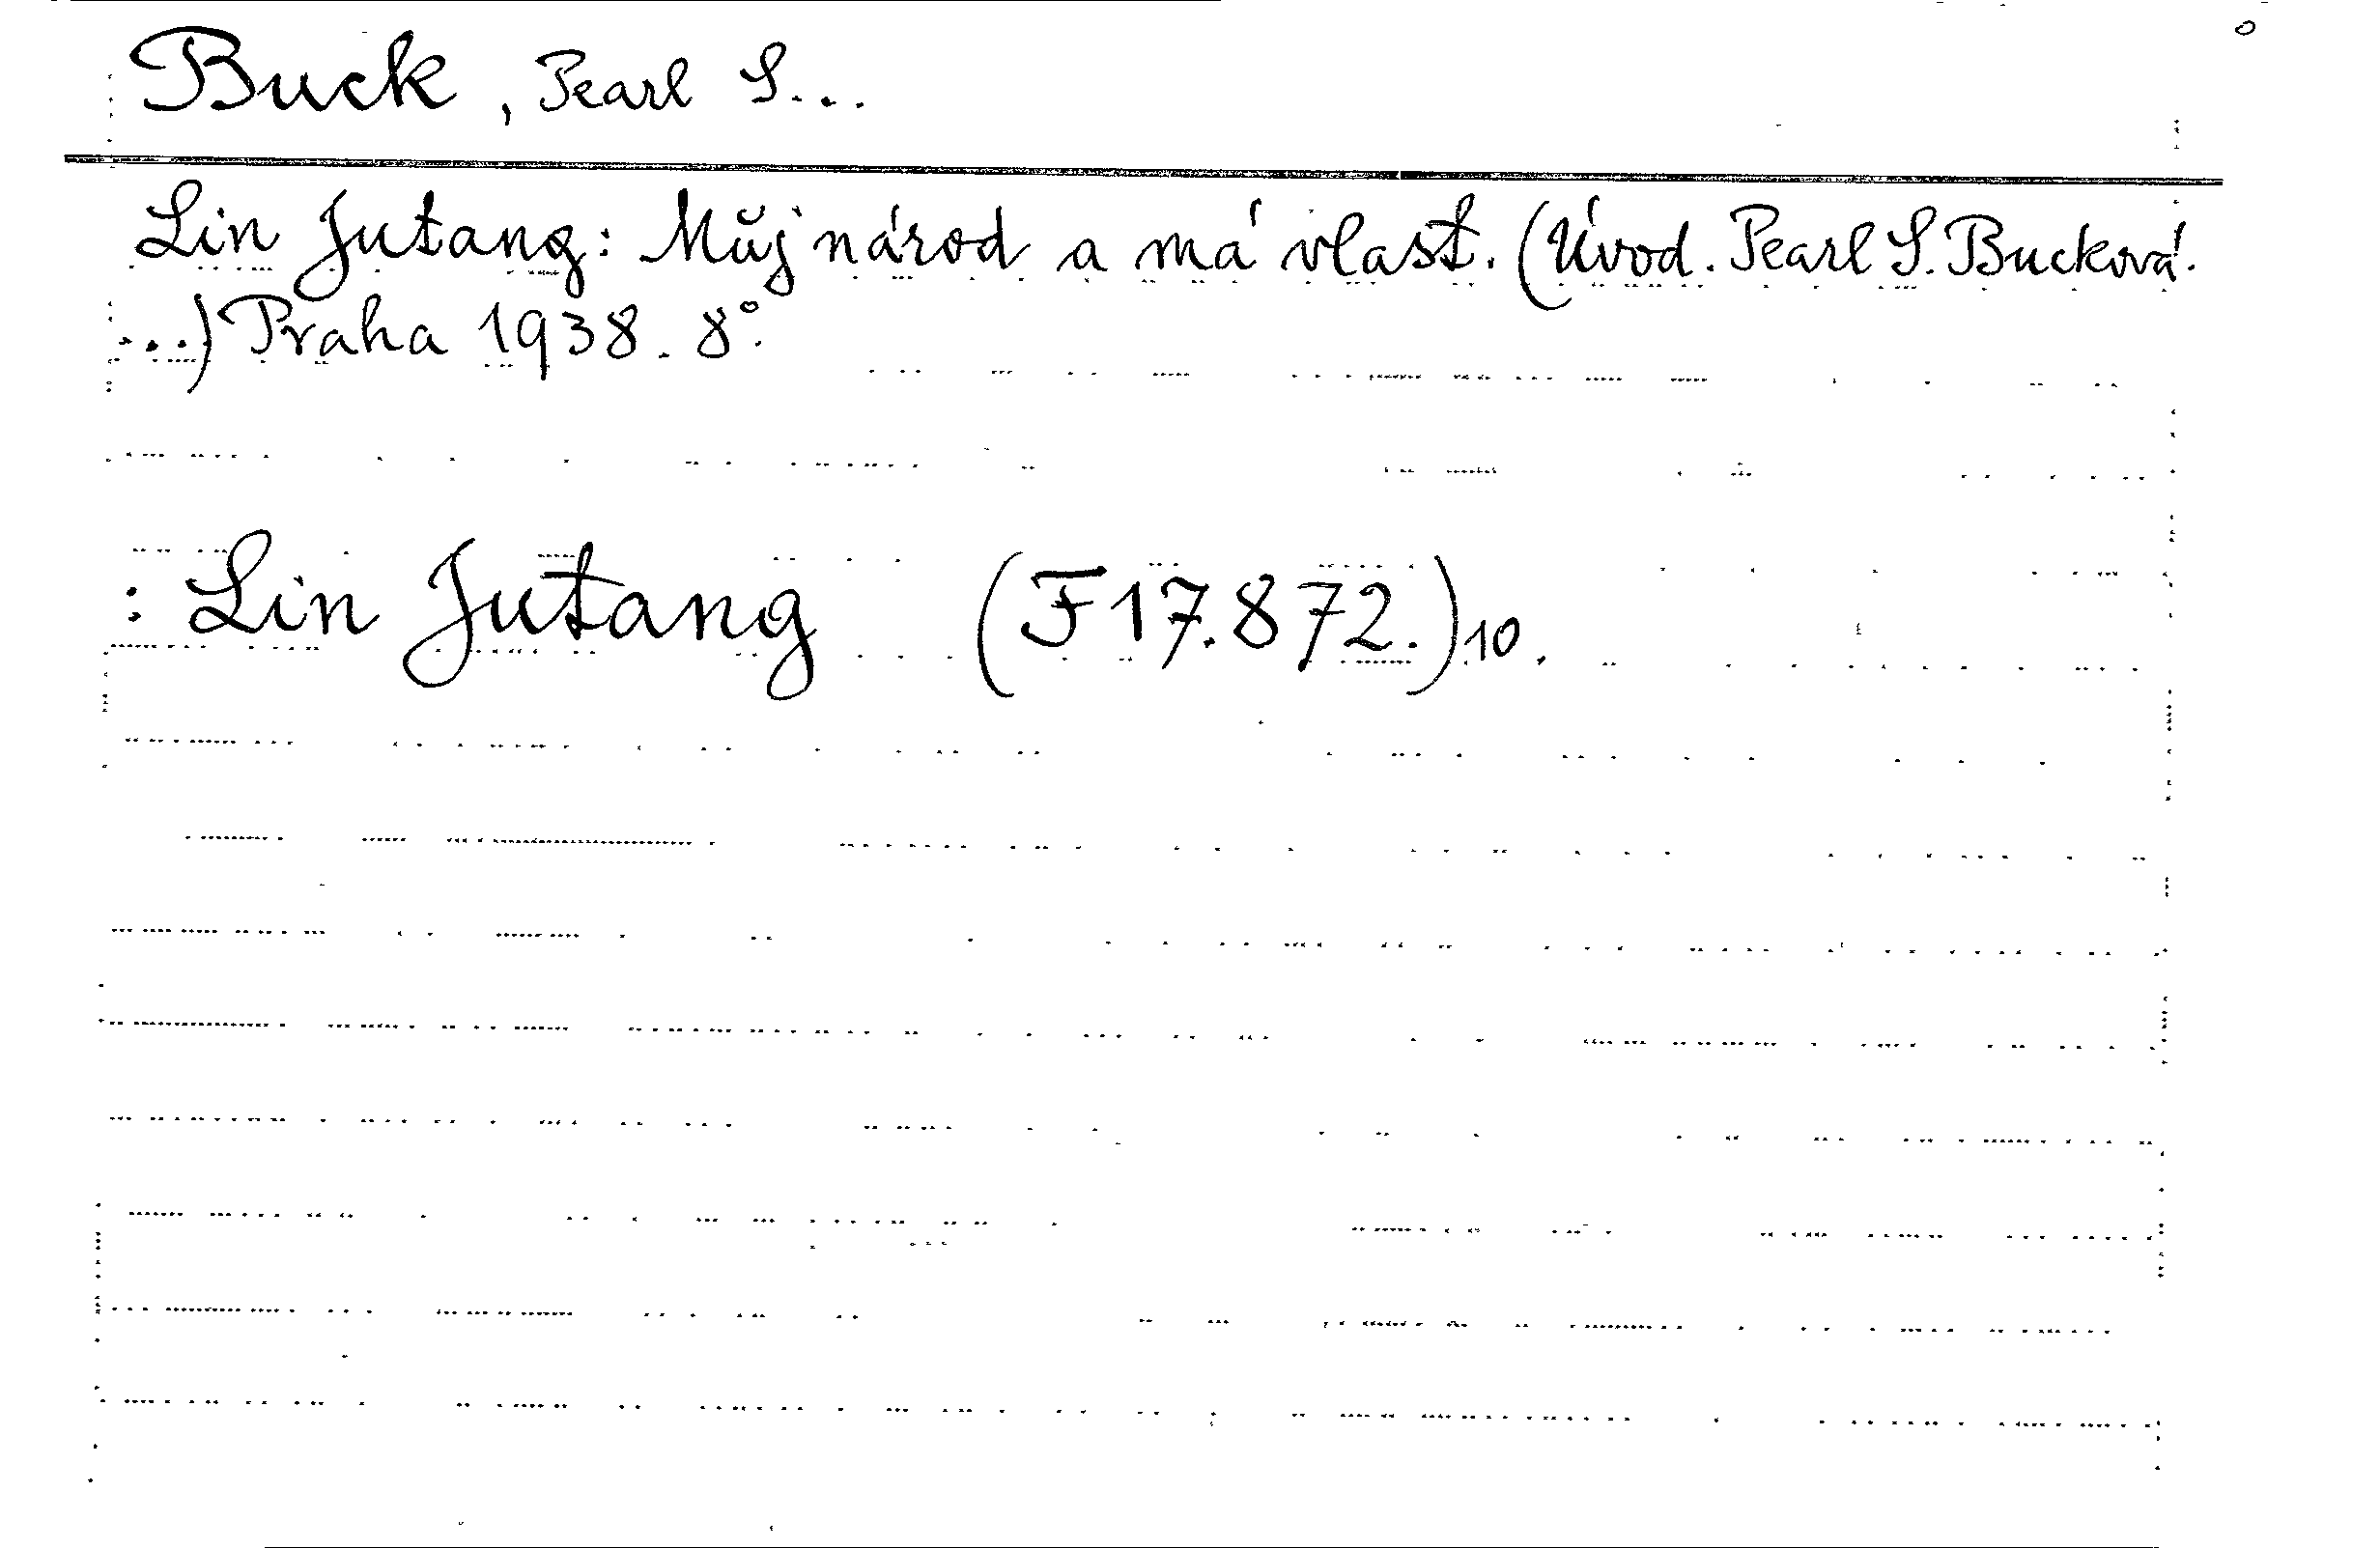 Buck, Pearl S...
Lin Jutang: Můj národ a má vlast. (Úvod. Pearl S. Bucková.
...) Praha 1938. 8°.
: Lin Jutang (F17.872.)10.